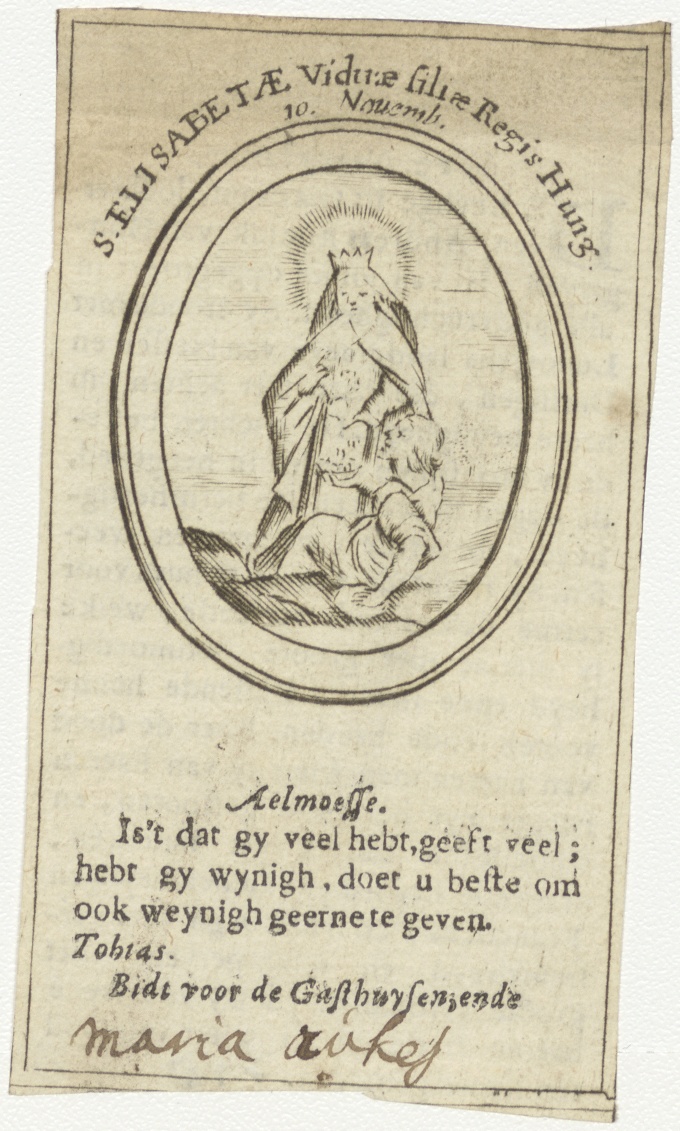 S. ELISABETÆ Viduæ filiæ Regis Hung.
10. Novemb.
Aelmoeſſe.
Is't dat gy veel hebt, geeft veel ;
hebt gy wynigh , doet u beſte om
ook weynigh geerne te geven.
Tobias.
Bidt voor de Gaſthuyſen, ende
maria